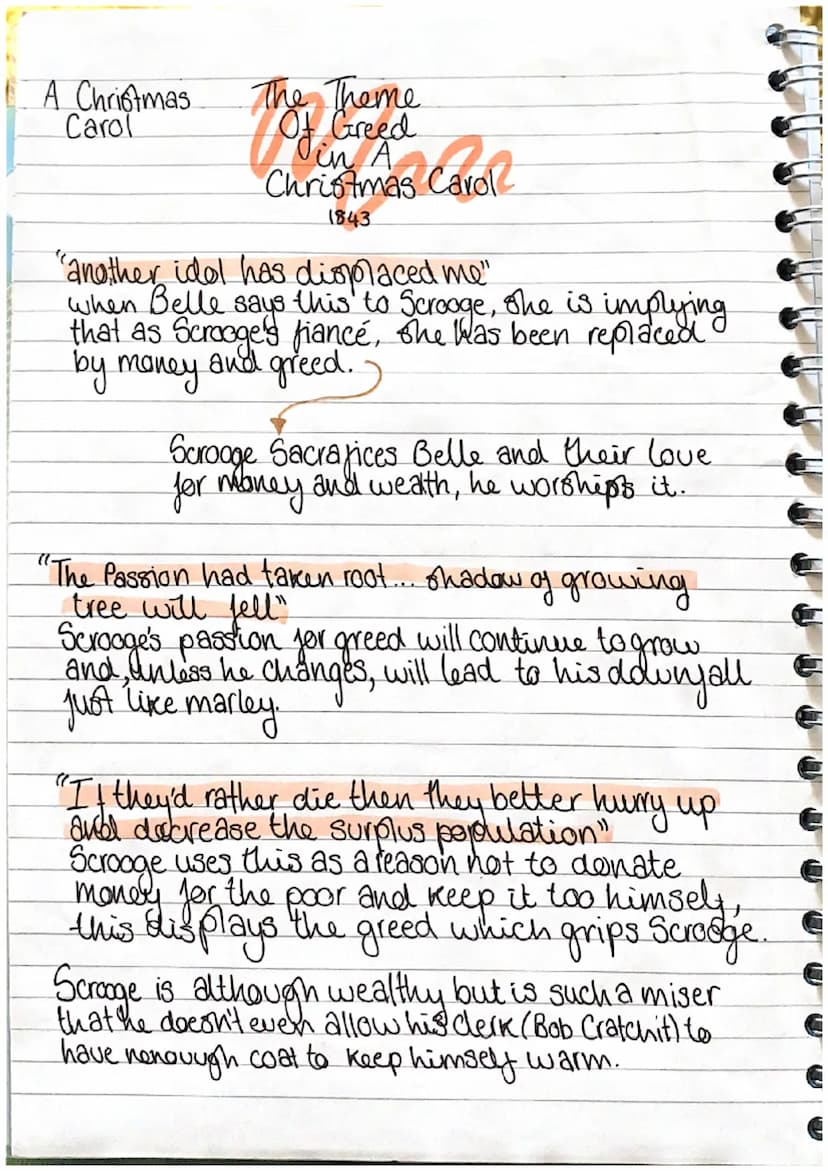 A Christmas
Carol
The Theme
Of Greed
in A
Christmas Carol
1843
"another idol has displaced me"
when Belle says this to Scrooge, she is implying
that as Scrooge's fiancé, she has been replaced
by money and greed.
Scrooge Sacrafices Belle and their love
for money and wealth, he worships it.
"The Passion had taken root... shadow of growing
tree will fell"
Scrooge's passion for greed will continue to grow
and, unless he changes, will lead to his downfall
just like marley.
"If they'd rather die then they better hurry up
and decrease the surplus population"
Scrooge uses this as a reason not to donate
money for the poor and keep it too himself,
this displays the greed which grips Scrooge.
Scrooge is although wealthy but is such a miser
that he doesn't even allow his clerk (Bob Cratchit) to
have coat to keep himself warm.